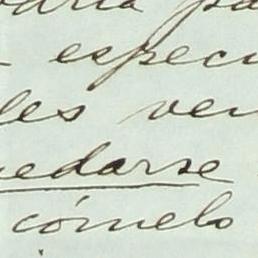 especi
les ven
edarse
cómelo